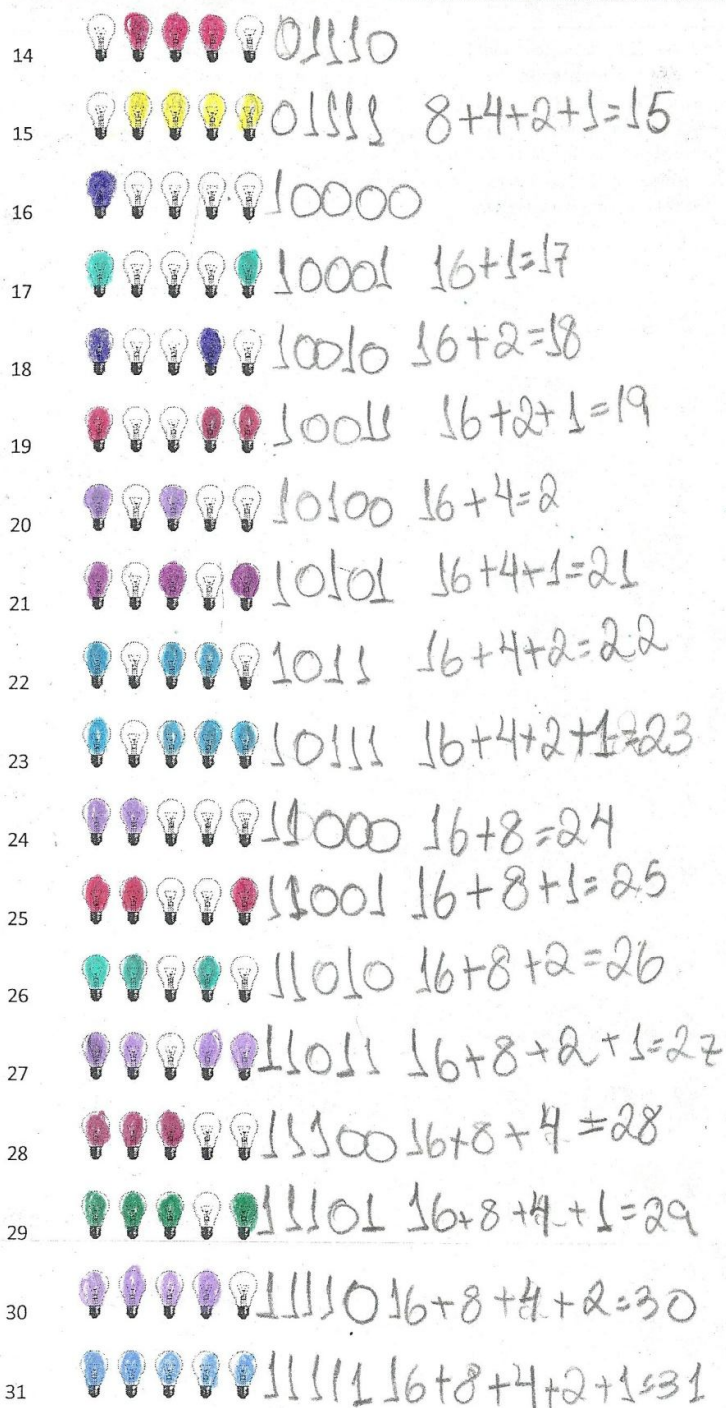 14 01110
15 01111 8+4+2+1=15
16 10000
17 10001 16+1=17
18 10010 16+2=18
19 10011 16+2+1=19
20 10100 16+4=2
21 10101 16+4+1=21
22 1011 16+4+2=22
23 10111 16+4+2+1=23
24 11000 16+8=24
25 11001 16+8+1=25
26 11010 16+8+2=26
27 11011 16+8+2+1=27
28 11100 16+8+4=28
29 11101 16+8+4+1=29
30 11110 16+8+4+2=30
31 11111 16+8+4+2+1=31